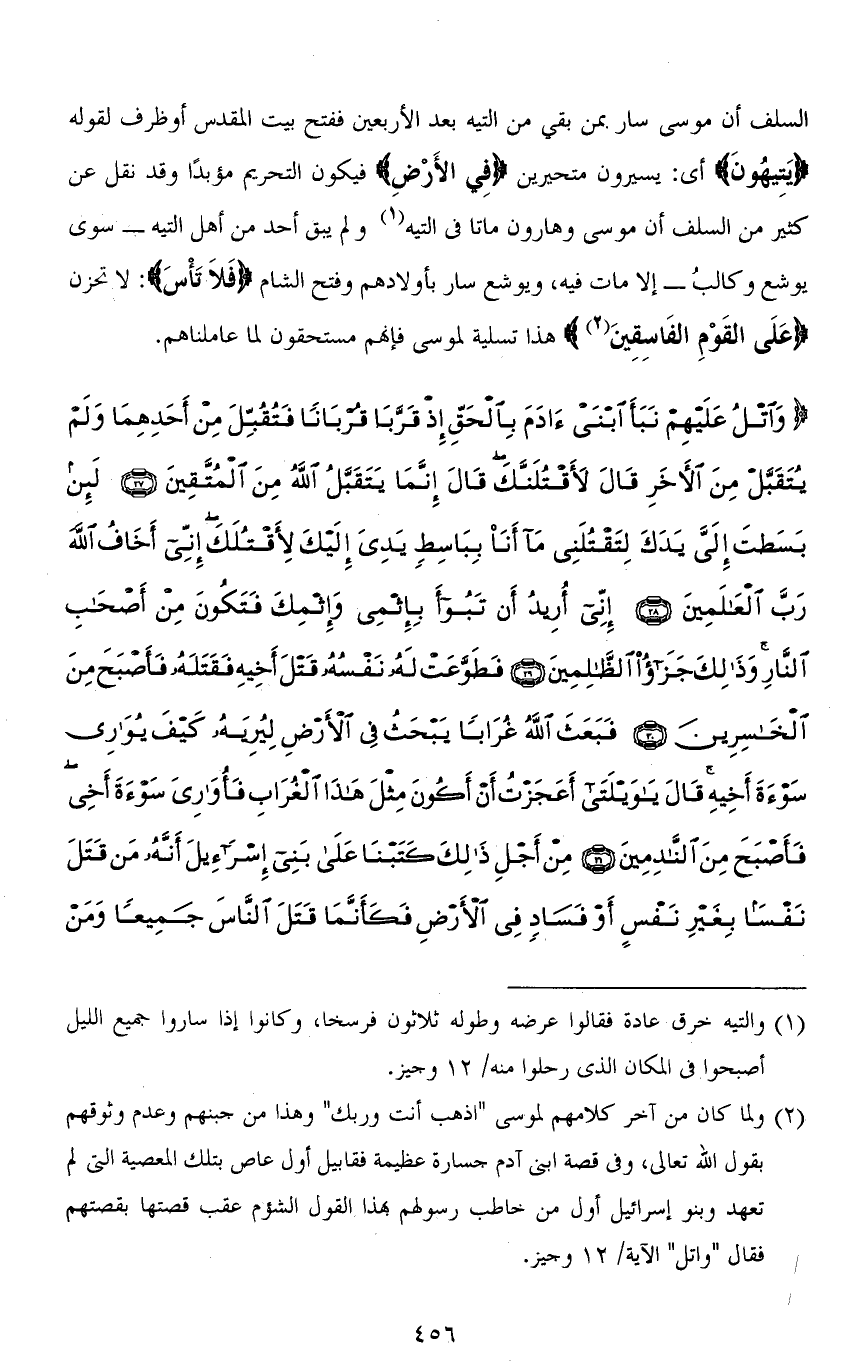 السلف أن موسى سار بمن بقي من التيه بعد الأربعين ففتح بيت المقدس أوظرف لقوله
﴿يَتِيهُونَ﴾ أى: يسيرون متحيرين ﴿فِي الأَرْضِ﴾ فيكون التحريم مؤبدًا وقد نقل عن
كثير من السلف أن موسى وهارون ماتا فى التيه(١) و لم يبق أحد من أهل التيه ــ سوى
يوشع وكالبُ ــ إلا مات فيه، ويوشع سار بأولادهم وفتح الشام ﴿فَلاَ تَأْسَ﴾: لا تحزن
﴿عَلَى القَوْمِ الفَاسِقِينَ(٢)﴾ هذا تسلية لموسى فإنهم مستحقون لما عاملناهم.
﴿ وَٱتْلُ عَلَيْهِمْ نَبَأَ ٱبْنَىْ ءَادَمَ بِٱلْحَقِّ إِذْ قَرَّبَا قُرْبَانًا فَتُقُبِّلَ مِنْ أَحَدِهِمَا وَلَمْ
يُتَقَبَّلْ مِنَ ٱلْأَخَرِ قَالَ لَأَقْتُلَنَّكَ ۖ قَالَ إِنَّمَا يَتَقَبَّلُ ٱللَّهُ مِنَ ٱلْمُتَّقِينَ ﴿٢٧﴾ لَئِنۢ
بَسَطتَ إِلَىَّ يَدَكَ لِتَقْتُلَنِى مَآ أَنَا۠ بِبَاسِطٍ يَدِىَ إِلَيْكَ لِأَقْتُلَكَ ۖ إِنِّىٓ أَخَافُ ٱللَّهَ
رَبَّ ٱلْعَـٰلَمِينَ ﴿٢٨﴾ إِنِّىٓ أُرِيدُ أَن تَبُوٓأَ بِإِثْمِى وَإِثْمِكَ فَتَكُونَ مِنْ أَصْحَـٰبِ
ٱلنَّارِ ۚ وَذَٰلِكَ جَزَٰٓؤُا۟ ٱلظَّـٰلِمِينَ ﴿٢٩﴾ فَطَوَّعَتْ لَهُۥ نَفْسُهُۥ قَتْلَ أَخِيهِ فَقَتَلَهُۥ فَأَصْبَحَ مِنَ
ٱلْخَـٰسِرِينَ ﴿٣٠﴾ فَبَعَثَ ٱللَّهُ غُرَابًا يَبْحَثُ فِى ٱلْأَرْضِ لِيُرِيَهُۥ كَيْفَ يُوَٰرِى
سَوْءَةَ أَخِيهِ ۚ قَالَ يَـٰوَيْلَتَىٰٓ أَعَجَزْتُ أَنْ أَكُونَ مِثْلَ هَـٰذَا ٱلْغُرَابِ فَأُوَٰرِىَ سَوْءَةَ أَخِى ۖ
فَأَصْبَحَ مِنَ ٱلنَّـٰدِمِينَ ﴿٣١﴾ مِنْ أَجْلِ ذَٰلِكَ كَتَبْنَا عَلَىٰ بَنِىٓ إِسْرَٰٓءِيلَ أَنَّهُۥ مَن قَتَلَ
نَفْسًۢا بِغَيْرِ نَفْسٍ أَوْ فَسَادٍ فِى ٱلْأَرْضِ فَكَأَنَّمَا قَتَلَ ٱلنَّاسَ جَمِيعًا وَمَنْ
(١) والتيه خرق عادة فقالوا عرضه وطوله ثلاثون فرسخا، وكانوا إذا ساروا جميع الليل
أصبحوا فى المكان الذى رحلوا منه/ ١٢ وجيز.
(٢) ولما كان من آخر كلامهم لموسى "اذهب أنت وربك" وهذا من جبنهم وعدم وثوقهم
بقول الله تعالى، وفى قصة ابنى آدم جسارة عظيمة فقابيل أول عاص بتلك المعصية التى لم
تعهد وبنو إسرائيل أول من خاطب رسولهم بهذا القول الشؤم عقب قصتها بقصتهم
فقال "واتل" الآية/ ١٢ وجيز.
٤٥٦